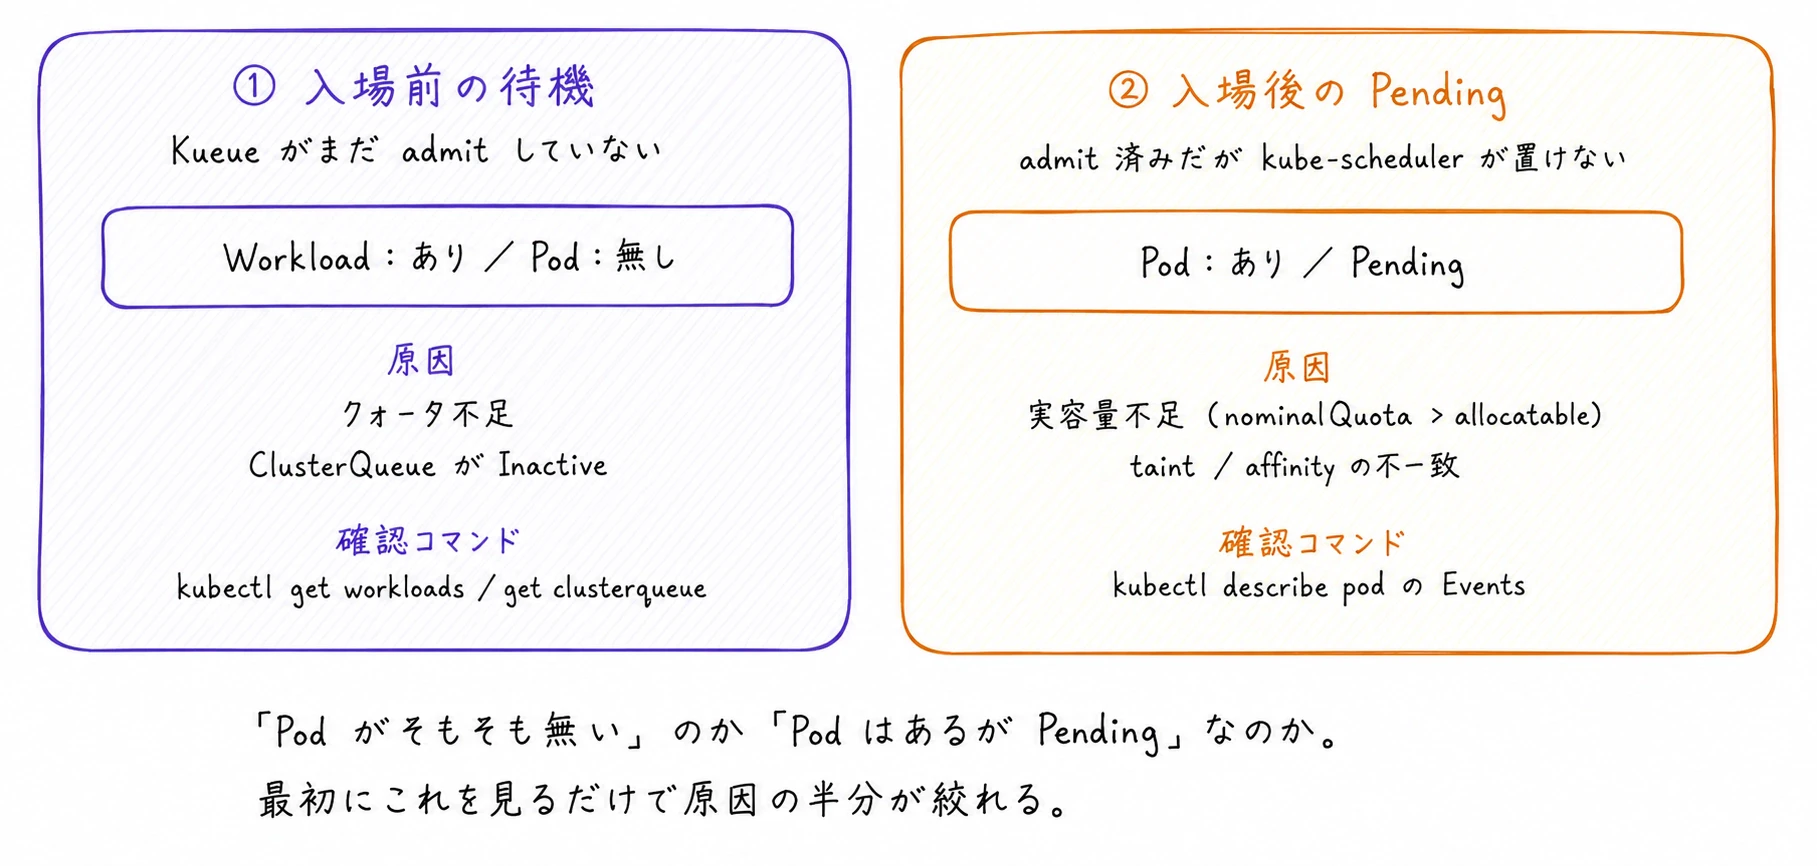 ① 入場前の待機
Kueue がまだ admit していない
Workload：あり ／ Pod：無し
原因
クォータ不足
ClusterQueue が Inactive
確認コマンド
kubectl get workloads / get clusterqueue
② 入場後の Pending
admit 済みだが kube-scheduler が置けない
Pod：あり ／ Pending
原因
実容量不足（nominalQuota > allocatable）
taint / affinity の不一致
確認コマンド
kubectl describe pod の Events
「Pod がそもそも無い」のか「Pod はあるが Pending」なのか。
最初にこれを見るだけで原因の半分が絞れる。